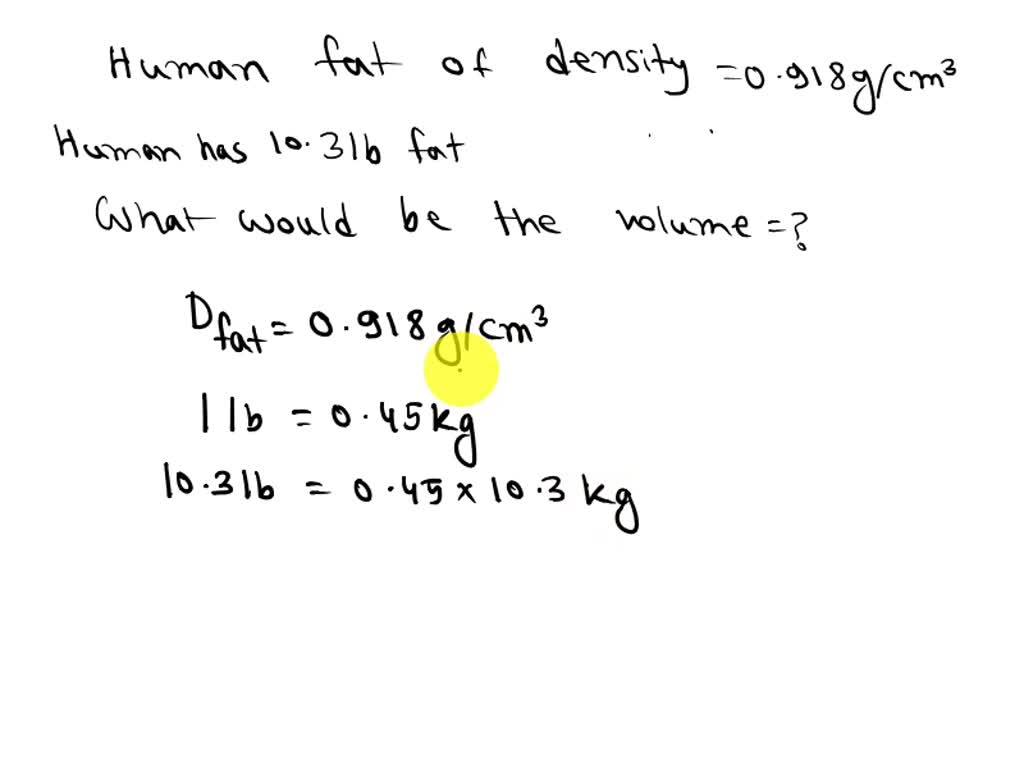 Human fat of density = 0.918g/cm³
Human has 10.3lb fat
What would be the volume = ?
Dfat = 0.918 g/cm³
1 lb = 0.45kg
10.3lb = 0.45 x 10.3 kg